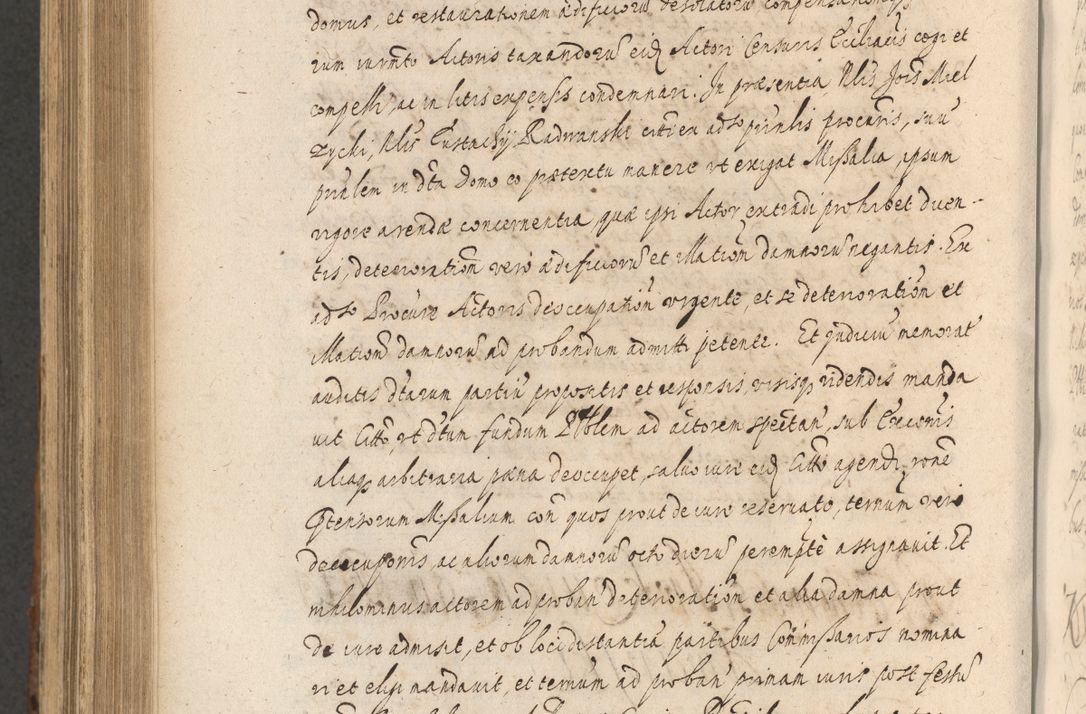 domus, et restaurationem ædificiorũ desolatorũ
rum iurmto Actoris taxandorũ eid Actori Censuris Eccliacis cogi et
compelli, ac in litis expensis condemnari. In præsentia Nlis Jois Miel
zycki, Nlis Eustachij Radwanski citi ex adso prinlis procuris, suũ
prinlem in dta Domo eo prætextu manere ut exigat Missalia, ipsum
vigore arendæ concernentia, quæ ipsi Actor extradi prohibet dicen-
tis, deterioration̄ vero ædificiorũ et illation̄ damnorũ negantis. Ex
adso Procure Actoris deoccupation̄ urgente, et se deterioration̄ et
illation̄ damnorũ ad probandum admitti petente. Et Judiciũ memorat
auditis dtarum partiũ propositis et responsis, visisq videndis manda
vit Citto, ut dtum fundum ad actorem spectan̄, sub Excōnis
aliaq arbitraria pæna deoccupet, salvo iure eid Citto agendi rōne
Ptensorum Missalium con̄ quos prout de iure reservato, termin̄um vero
deoccupōnis ac aliorum damnorũ octo dierũ peremptē assignavit. Et
nihilominus actorem ad proban̄ deterioration̄ et alia damna prout
de iure admisit, et ob loci distantiã partibus Commissarios nomina
ri et eligi mandavit, et termin̄um ad proban̄ primam iuris post festũ